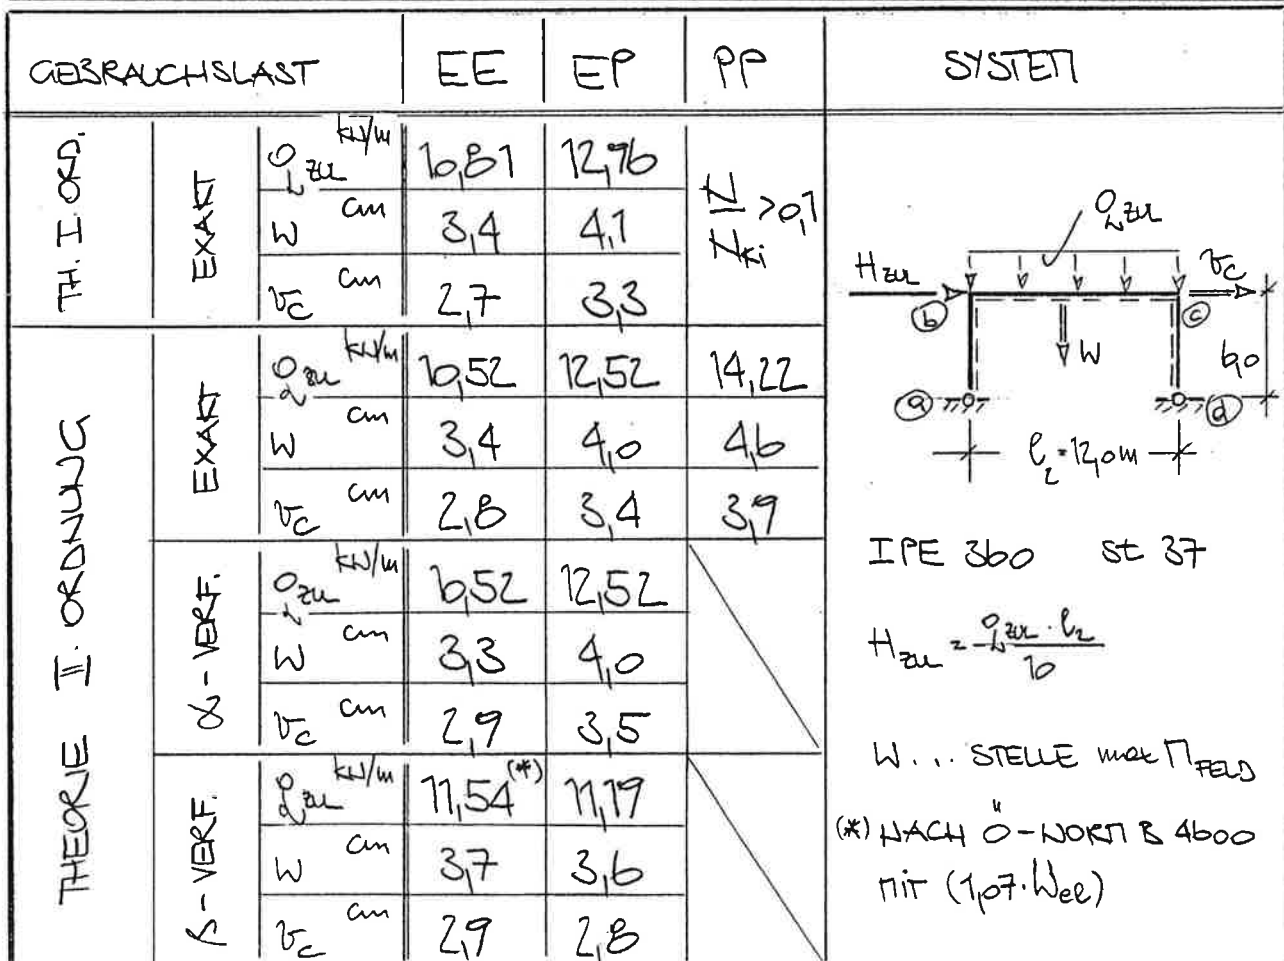 GEBRAUCHSLAST EE EP PP SYSTEM
TH. I. ORD.
EXAKT
q zul kN/m 10,81 12,96
w cm 3,4 4,1
v_c cm 2,7 3,3
N/N_Ki > 0,1
THEORIE II. ORDNUNG
EXAKT
q zul kN/m 10,52 12,52 14,22
w cm 3,4 4,0 4,6
v_c cm 2,8 3,4 3,9
α-VERF.
q zul kN/m 10,52 12,52
w cm 3,3 4,0
v_c cm 2,9 3,5
β-VERF.
q zul kN/m 11,54 (*) 11,19
w cm 3,7 3,6
v_c cm 2,9 2,8
q zul
H zul
v_c
b
c
w
6,0
a
d
l₂ = 12,0 m
IPE 360 St 37
H zul = q zul · l₂ / 10
W ... STELLE max M FELD
(*) NACH Ö-NORM B 4600
MIT (1,07 · Wel)